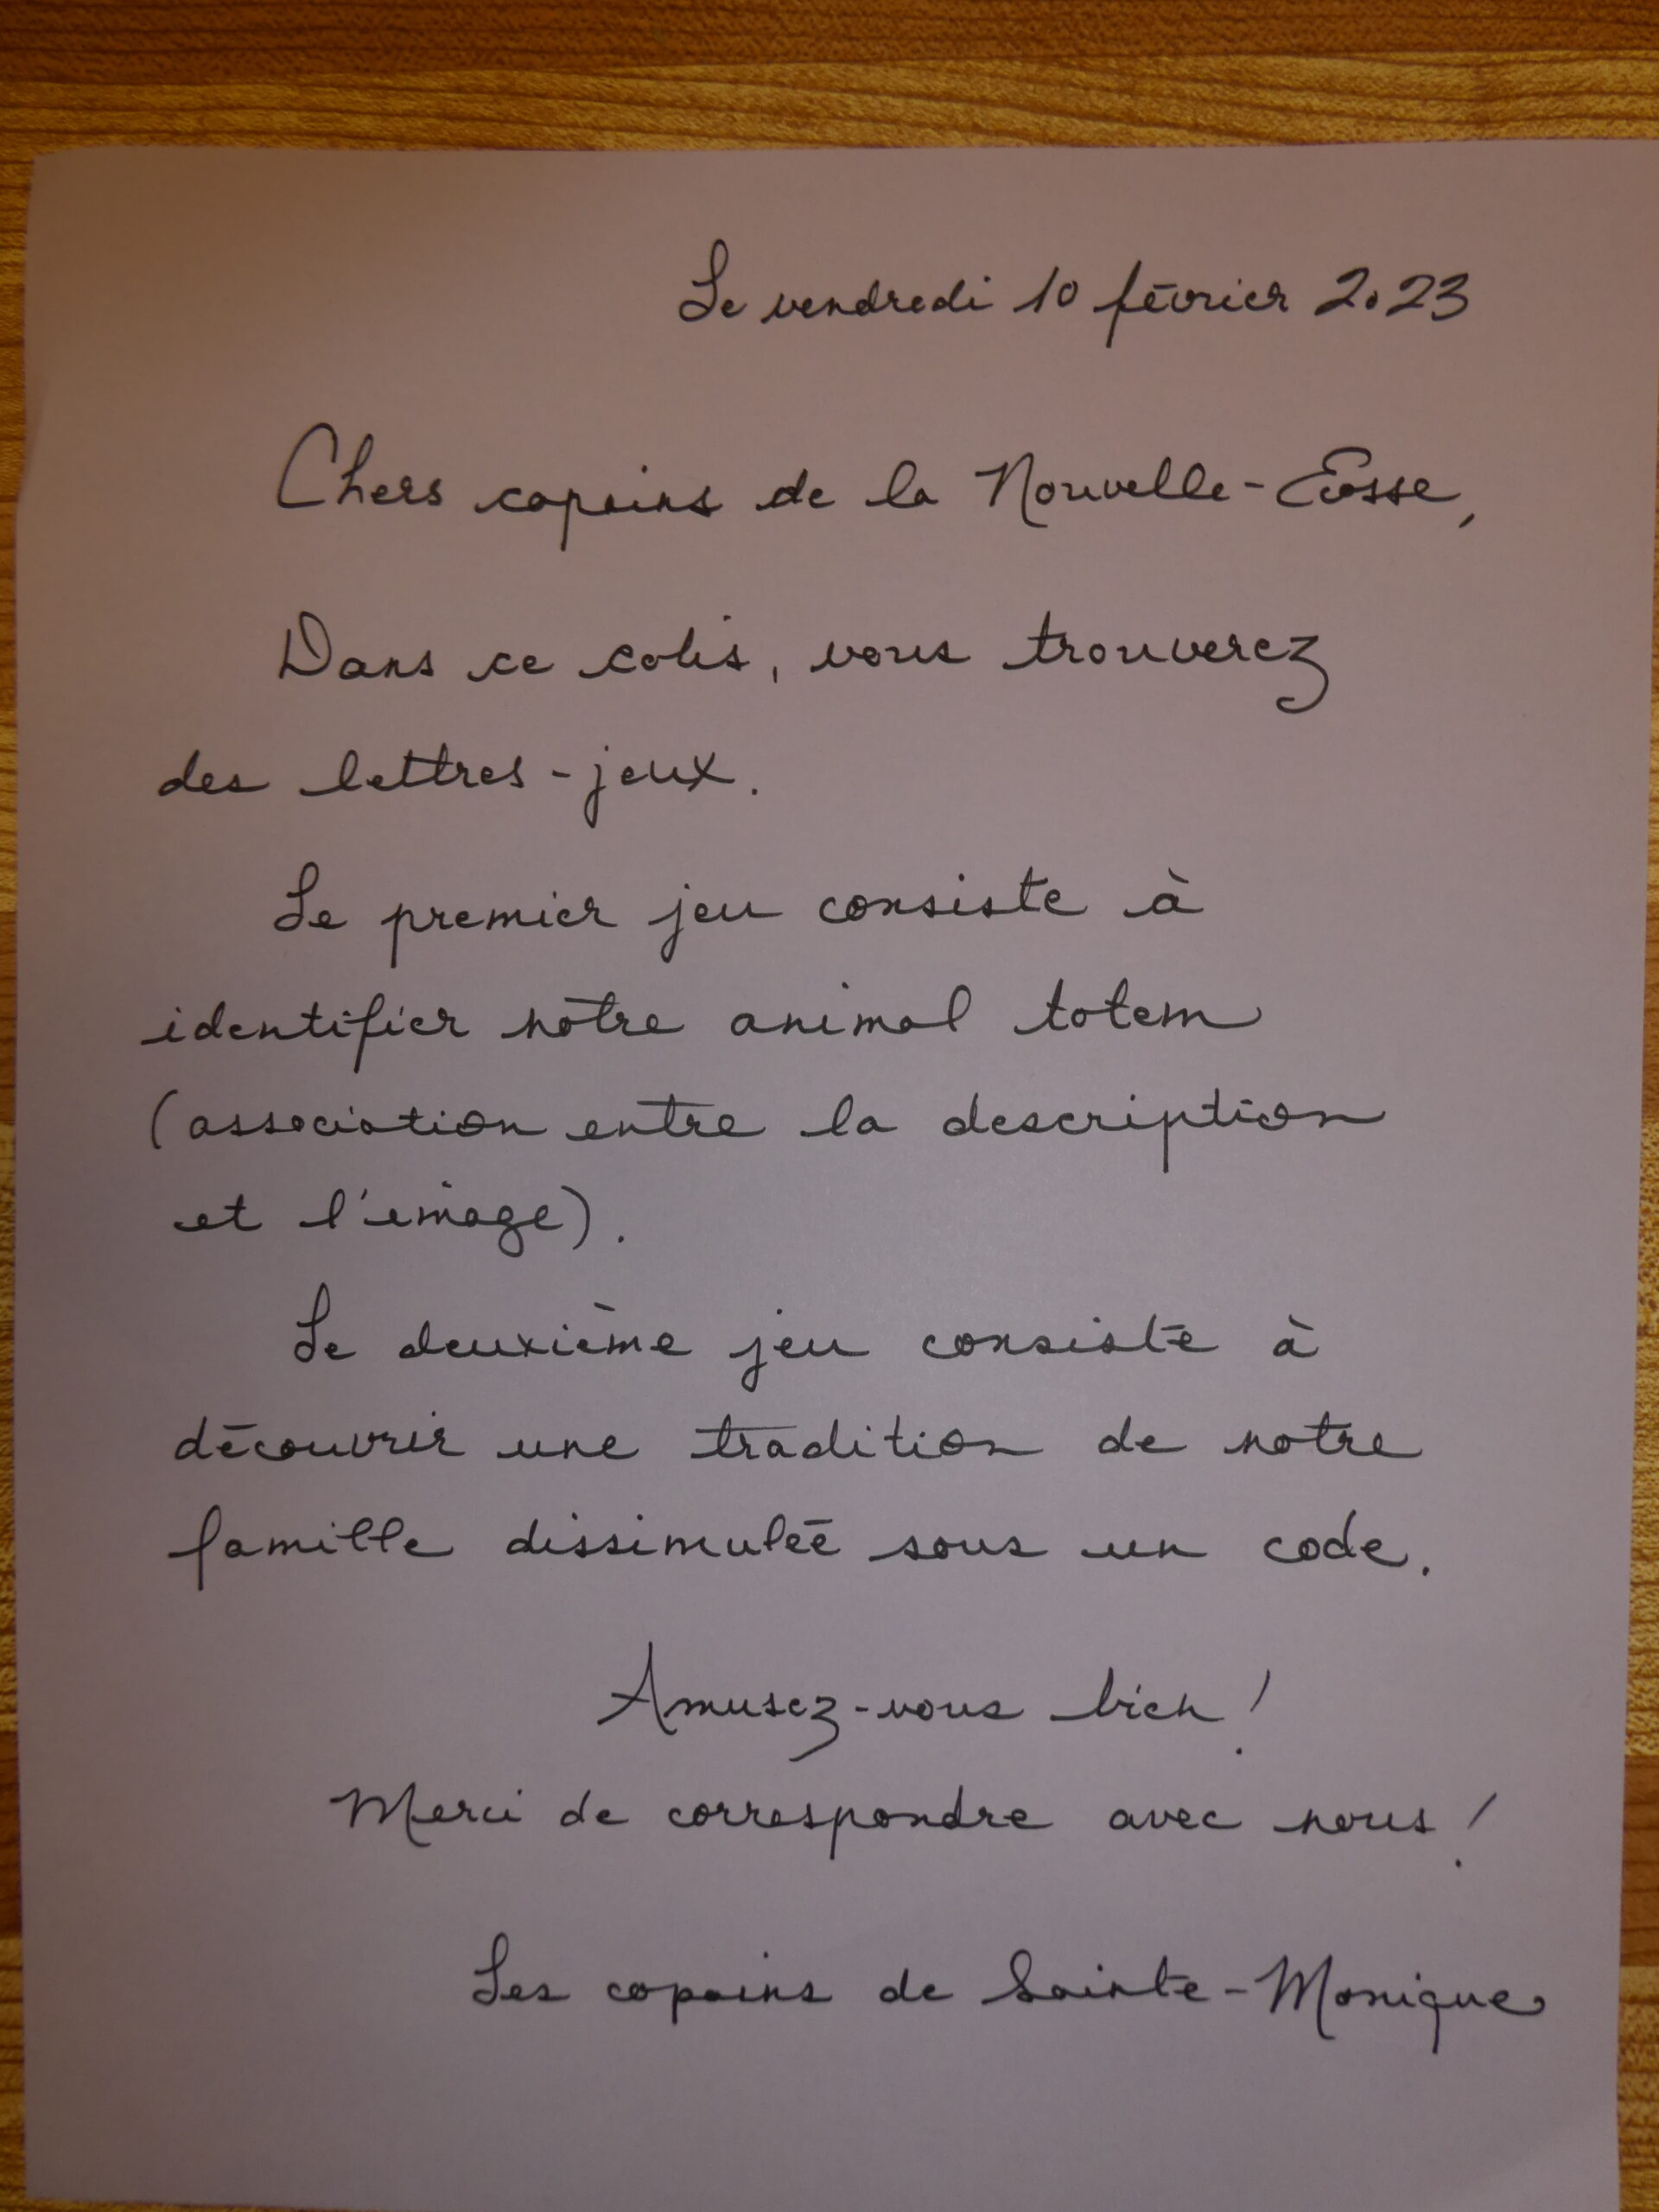 Le vendredi 10 février 2023
Chers copains de la Nouvelle-Écosse,
Dans ce colis, vous trouverez
des lettres-jeux.
Le premier jeu consiste à
identifier notre animal totem
(association entre la description
et l'image).
Le deuxième jeu consiste à
découvrir une tradition de notre
famille dissimulée sous un code.
Amusez-vous bien !
Merci de correspondre avec nous !
Les copains de Sainte-Monique